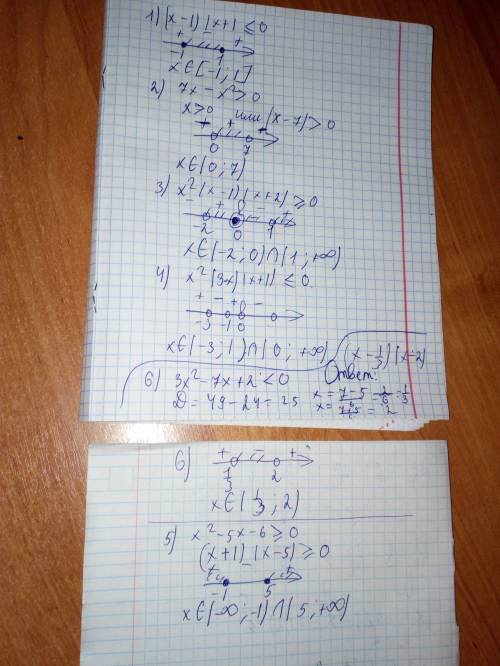 1) (x-1)(x+1 ≤ 0
+ - +
-1 1
x∈[-1; 1]
2) 7x - x² > 0
x>0 или (x-7) > 0
- + -
0 7
x∈(0; 7)
3) x²(x-1)(x+2) ≥ 0
- + 0 - +
-2 0 1
x∈(-2; 0)∩(1; +∞)
4) x²(3x)(x+1) ≤ 0
+ - + 0 -
-3 -1 0
x∈(-3; 1)∩(0; +∞)
(x - 1/3)(x-2)
6) 3x²-7x+2<0
Ответ:
D = 49-24=25
x = 7-5/6 = 2/6 = 1/3
x = 7+5/6 = 2
6) + - +
1/3 2
x∈(1/3; 2)
5) x²-5x-6 ≥ 0
(x+1)(x-5) ≥ 0
+ - +
-1 5
x∈(-∞; -1)∩(5; +∞)